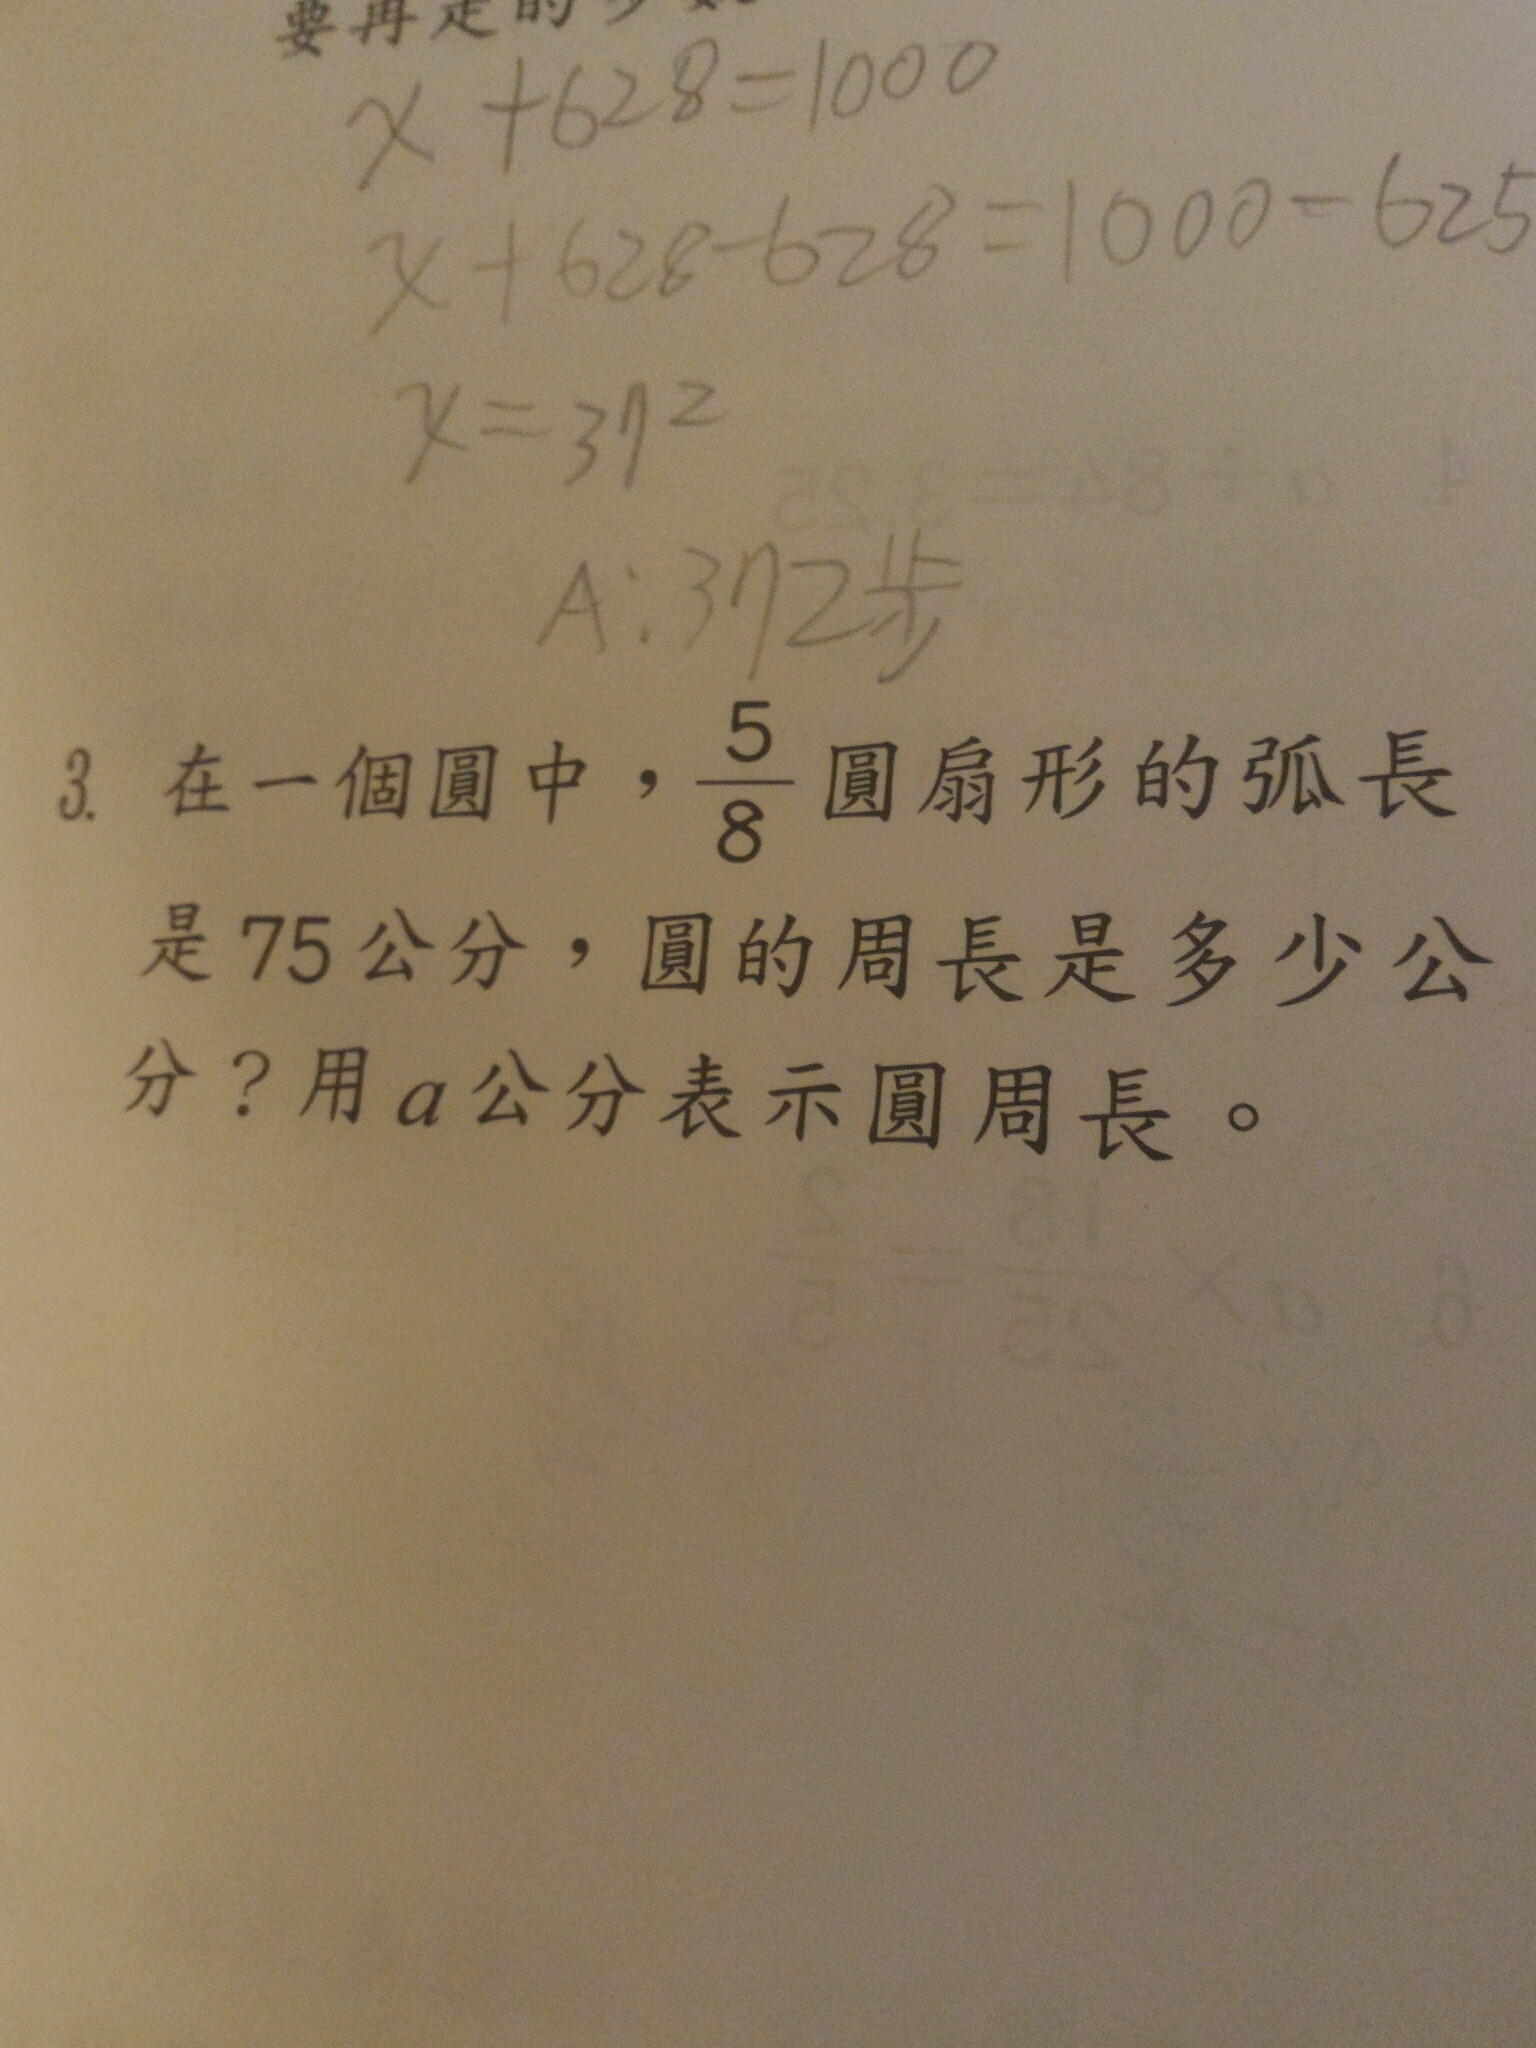 要再走的步數
x+628=1000
x+628-628=1000-625
x=372
A:372步
3. 在一個圓中，5/8圓扇形的弧長
是75公分，圓的周長是多少公
分？用a公分表示圓周長。